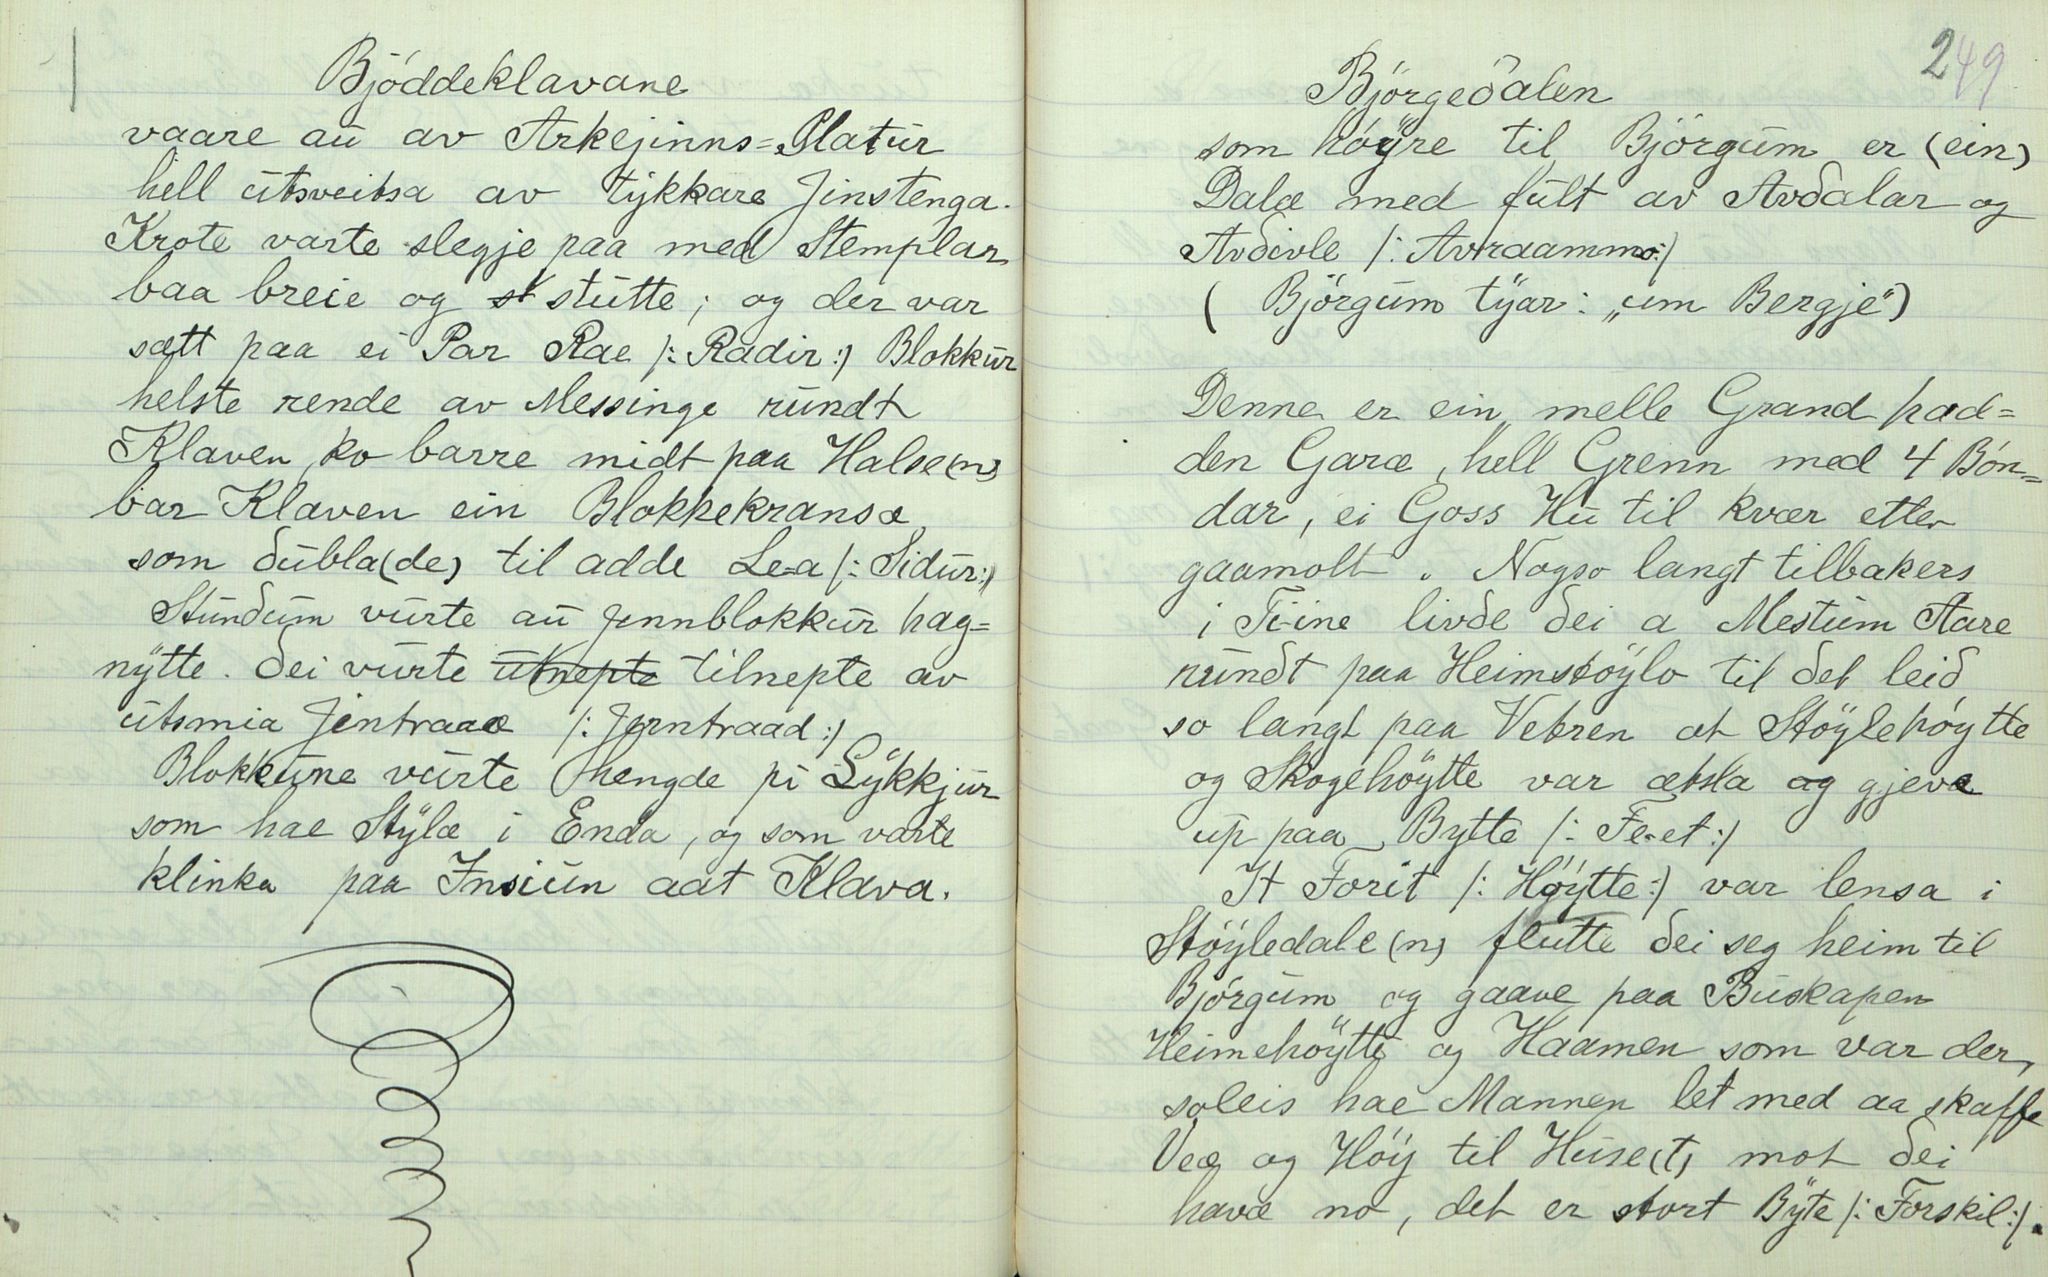 Bjóddeklavane
vaare au av Arkejinns=Platur
hell utsveitsa av tykkare Jinstenga.
Krote varte slegje paa med Stemplar
baa breie og stutte; og der var
sætt paa ei Par Rae /: Radir :/ Blokkur
helste rende av Messinge rundt
Klaven, ko barre midt paa Halse(n)
bar Klaven ein Blokkekransæ
som dubla(de) til adde Lea /: Sidur :/
Stundum vurte au Jennblokkur hag=
nytte. Dei vurte utnepte tilnepte av
utsmia Jentraaæ /: Jerntraad :/
Blokkune vurte hengde pi Lykkjur
som hae Stylæ i Enda, og som varte
klinka paa Insiun aat Klava.
249
Björgedalen
som höyre til Björgum er (ein)
Dalæ med fult av Avdalar og
Avdivle /: Avraammo :/
( Björgum tyar: „um Bergje")
Denne er ein melle Grand had=
den Garæ, hell Grenn med 4 Bón=
dar, ei Goss Hu til kvær etter
gaamolt. Nogso langt tilbakers
i Ti-ine livde dei a Mestum Aare
rundt paa Heimstöylo til det leid
so langt paa Vetren at Stöylehöytte
og Skogehöytte var ætsla og gjevæ
up paa Bytte /: Fe-et :/
It Forit /: Höytte :/ var lensa i
Stöyledale(n) flutte dei seg heim til
Björgum og gaave paa Buskapen
Heimehöytte og Haamen som var der,
soleis hae Mannen let med aa skaffe
Veæ og Höy til Huse(t) mot dei
havæ no, det er stort Byte /: Forskil :/.